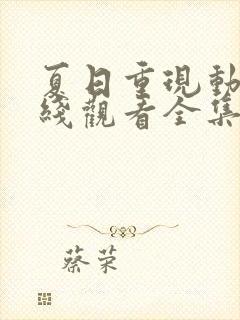 夏日重現動
綫觀看全集
蔡荣